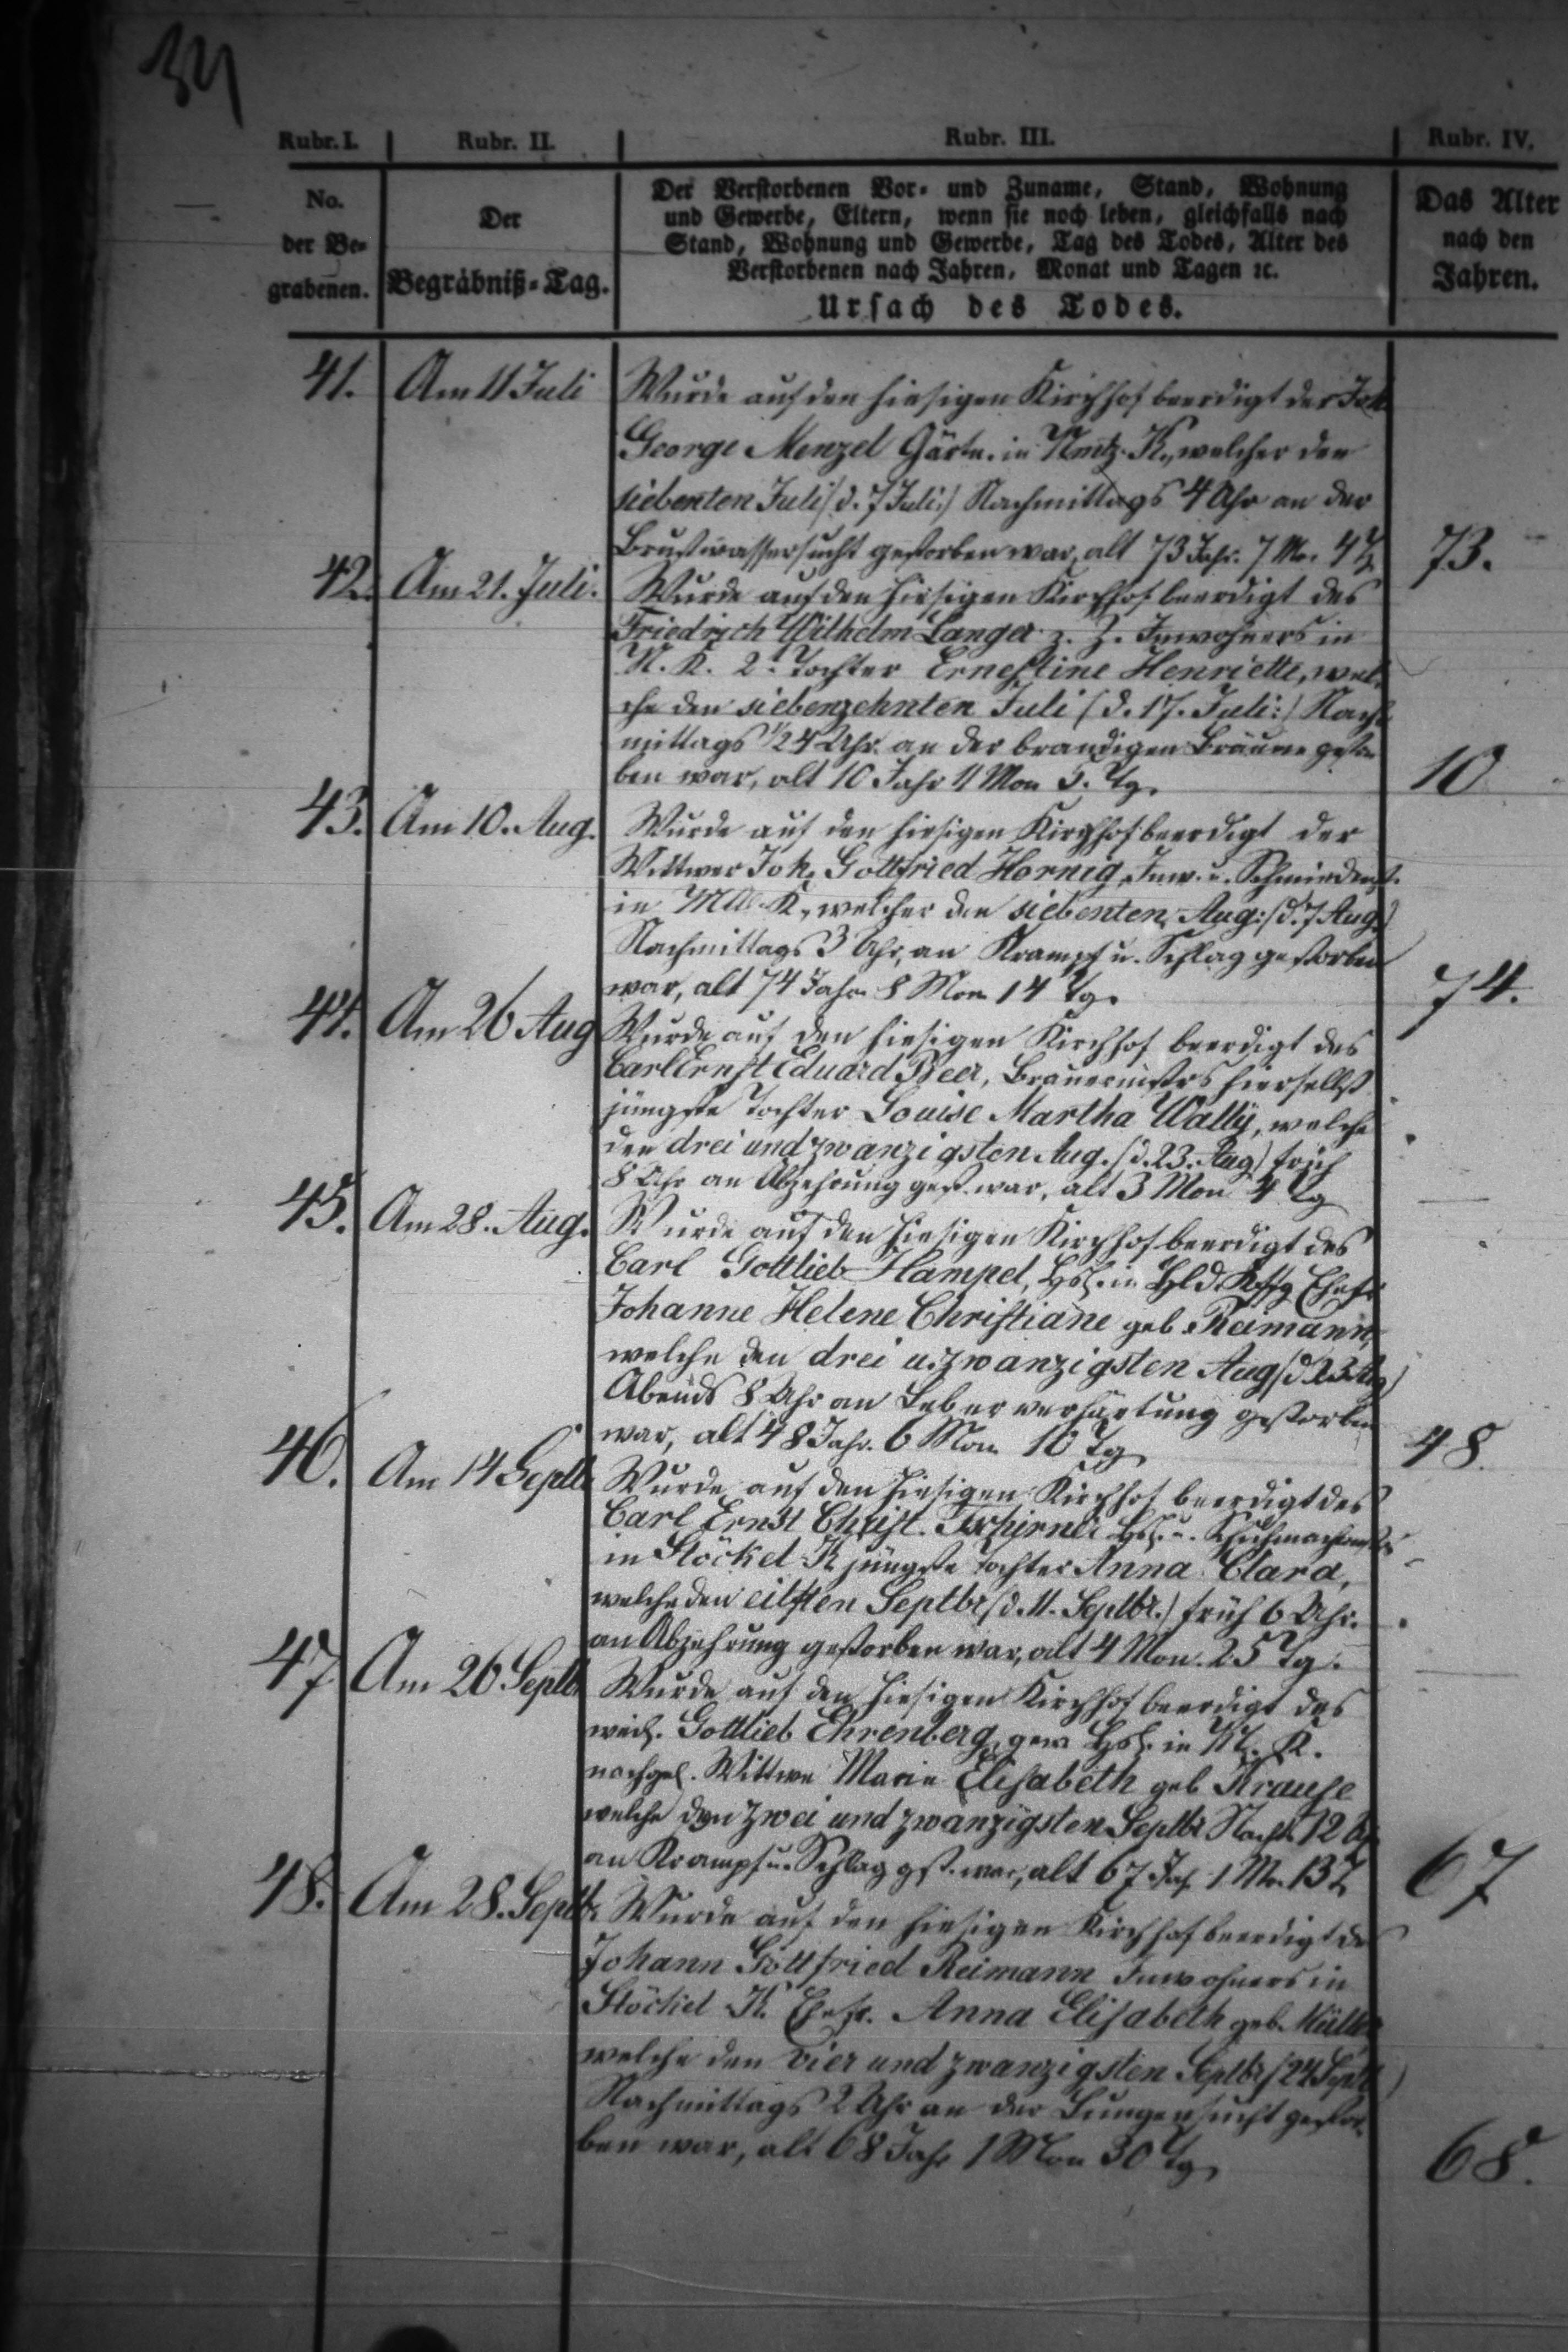 34
Rubr. I. Rubr. II. Rubr. III. Rubr. IV.
No. der Be-grabenen.
Der Begräbniß-Tag.
Der Verstorbenen Vor- und Zuname, Stand, Wohnung
und Gewerbe, Eltern, wenn sie noch leben, gleichfalls nach
Stand, Wohnung und Gewerbe, Tag des Todes, Alter des
Verstorbenen nach Jahren, Monat und Tagen ꝛc.
Ursach des Todes.
Das Alter
nach den
Jahren.
41. Am 11 Juli Wurde auf den hiesigen Kirchhof beerdigt der Joh.
George Menzel Gärtn. in K., welcher den
siebenten Juli (d. 7 Juli:) Nachmittags 4 Uhr an der
Brustwassersucht gestorben war, alt 73 Jahr. 7 Mo. 4 T. 73.
42. Am 21. Juli. Wurde auf den hiesigen Kirchhof beerdigt des
Friedrich Wilhelm Langer z. Z. Inwohners in
N. K. 2t. Tochter Ernestine Henriette, wel-
che den siebenzehnten Juli (d. 17. Juli:) Nach-
mittags 1/2 4 Uhr. an der brandigen Bräune gestor-
ben war, alt 10 Jahr 11 Mon 5. Tg. 10
43. Am 10. Aug. Wurde auf den hiesigen Kirchhof beerdigt der
Wittwer Joh. Gottfried Hornig, Inw. u.
in K., welcher den siebenten Aug: (d. 7 Aug.)
Nachmittags 3 Uhr, an Krampf u. Schlag gestorben
war, alt 74 Jahr 8 Mon 14 Tg. 74.
44. Am 26 Aug Wurde auf den hiesigen Kirchhof beerdigt des
Carl Ernst Eduard Beer, Brauermstrs hierselbst
jüngste Tochter Louise Martha Wally, welche
den drei und zwanzigsten Aug. (d. 23. Aug) früh
8 Uhr an Abzehrung gest. war, alt 3 Mon 4 Tg
45. Am 28. Aug. Wurde auf den hiesigen Kirchhof beerdigt des
Carl Gottlieb Hampel, Hsl. in Ehefr
Johanne Helene Christiane geb. Reimann,
welche den drei u. zwanzigsten Aug (d 23 Aug)
Abends 8 Uhr an Leberverhärtung gestorben
war, alt 48 Jahr. 6 Mon 10 Tg 48.
46. Am 14 Septb Wurde auf den hiesigen Kirchhof beerdigt des
Carl Ernst Christ. Hsl. u. Schuhmachermstrs
in Stöckel-K jüngste Tochter Anna Clara,
welche den eilften Septbr (d. 11. Septbr.) früh 6 Uhr.
an Abzehrung gestorben war, alt 4 Mon. 25 Tg.
47 Am 26 Septb Wurde auf den hiesigen Kirchhof beerdigt des
weil. Gottlieb Ehrenberg, gew Hsl. in K.
nachgel. Wittwe Marie Elisabeth geb Krause
welche den zwei und zwanzigsten Septbr Nachts 12 Uhr
an Krampf u. Schlag gst. war, alt 67 Jah 1 Mo. 13 T. 67
48. Am 28. Septb. Wurde auf den hiesigen Kirchhof beerdigt des
Johann Gottfried Reimann Inwohners in
Stöckel K. Ehefr. Anna Elisabeth geb. Müller
welche den vier und zwanzigsten Septbr (24 Septb)
Nachmittags 2 Uhr an der Lungensucht gestor-
ben war, alt 68 Jahr 1 Mon 30 Tg 68.